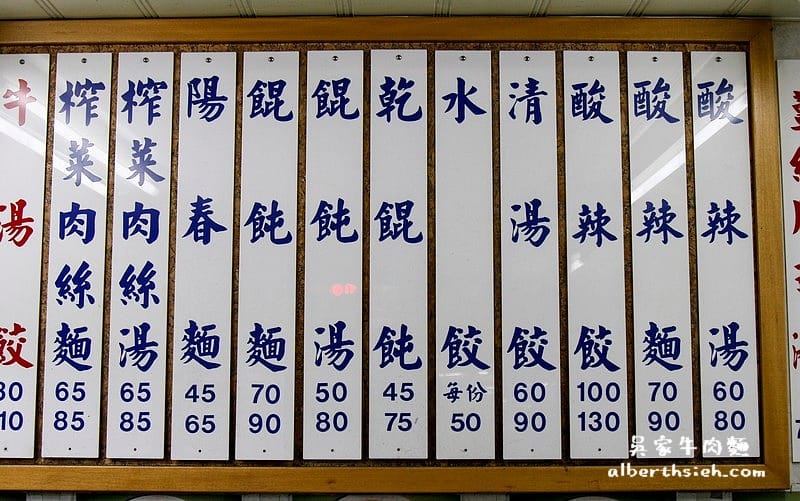 酸辣湯 60 80
酸辣麵 70 90
酸辣餃 100 130
清湯餃 60 90
水餃 每份 50
乾餛飩 45 75
餛飩湯 50 80
餛飩麵 70 90
陽春麵 45 65
榨菜肉絲湯 65 85
榨菜肉絲麵 65 85
牛湯餃
吳家牛肉麵
alberthsieh.com